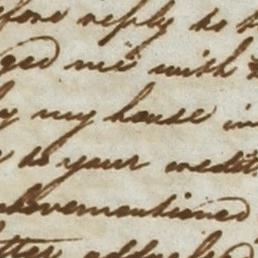 before reply to
ged me wish
my house in
to your credit
abovementioned
letter addressed